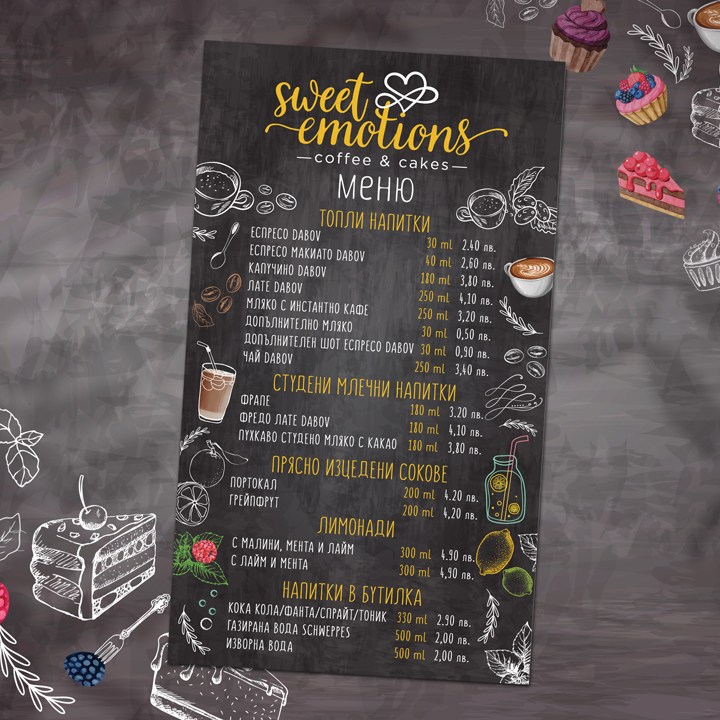 sweet
emotions
coffee & cakes
МЕНЮ
ТОПЛИ НАПИТКИ
ЕСПРЕСО DABOV 30 ml 2.40 лв.
ЕСПРЕСО МАКИАТО DABOV 40 ml 2,60 лв.
КАПУЧИНО DABOV 180 ml 3,80 лв.
ЛАТЕ DABOV 250 ml 4,10 лв.
МЛЯКО С ИНСТАНТНО КАФЕ 250 ml 3,20 лв.
ДОПЪЛНИТЕЛНО МЛЯКО 30 ml 0,50 лв.
ДОПЪЛНИТЕЛЕН ШОТ ЕСПРЕСО DABOV 30 ml 0,90 лв.
ЧАЙ DABOV 250 ml 3,40 лв.
СТУДЕНИ МЛЕЧНИ НАПИТКИ
ФРАПЕ 180 ml 3.20 лв.
ФРЕДО ЛАТЕ DABOV 180 ml 4,10 лв.
ПУХКАВО СТУДЕНО МЛЯКО С КАКАО 180 ml 3,80 лв.
ПРЯСНО ИЗЦЕДЕНИ СОКОВЕ
ПОРТОКАЛ 200 ml 4.20 лв.
ГРЕЙПФРУТ 200 ml 4,20 лв.
ЛИМОНАДИ
С МАЛИНИ, МЕНТА И ЛАЙМ 300 ml 4.90 лв.
С ЛАЙМ И МЕНТА 300 ml 4,90 лв.
НАПИТКИ В БУТИЛКА
КОКА КОЛА/ФАНТА/СПРАЙТ/ТОНИК 330 ml 2.90 лв.
ГАЗИРАНА ВОДА SCHWEPPES 500 ml 2,00 лв.
ИЗВОРНА ВОДА 500 ml 2,00 лв.